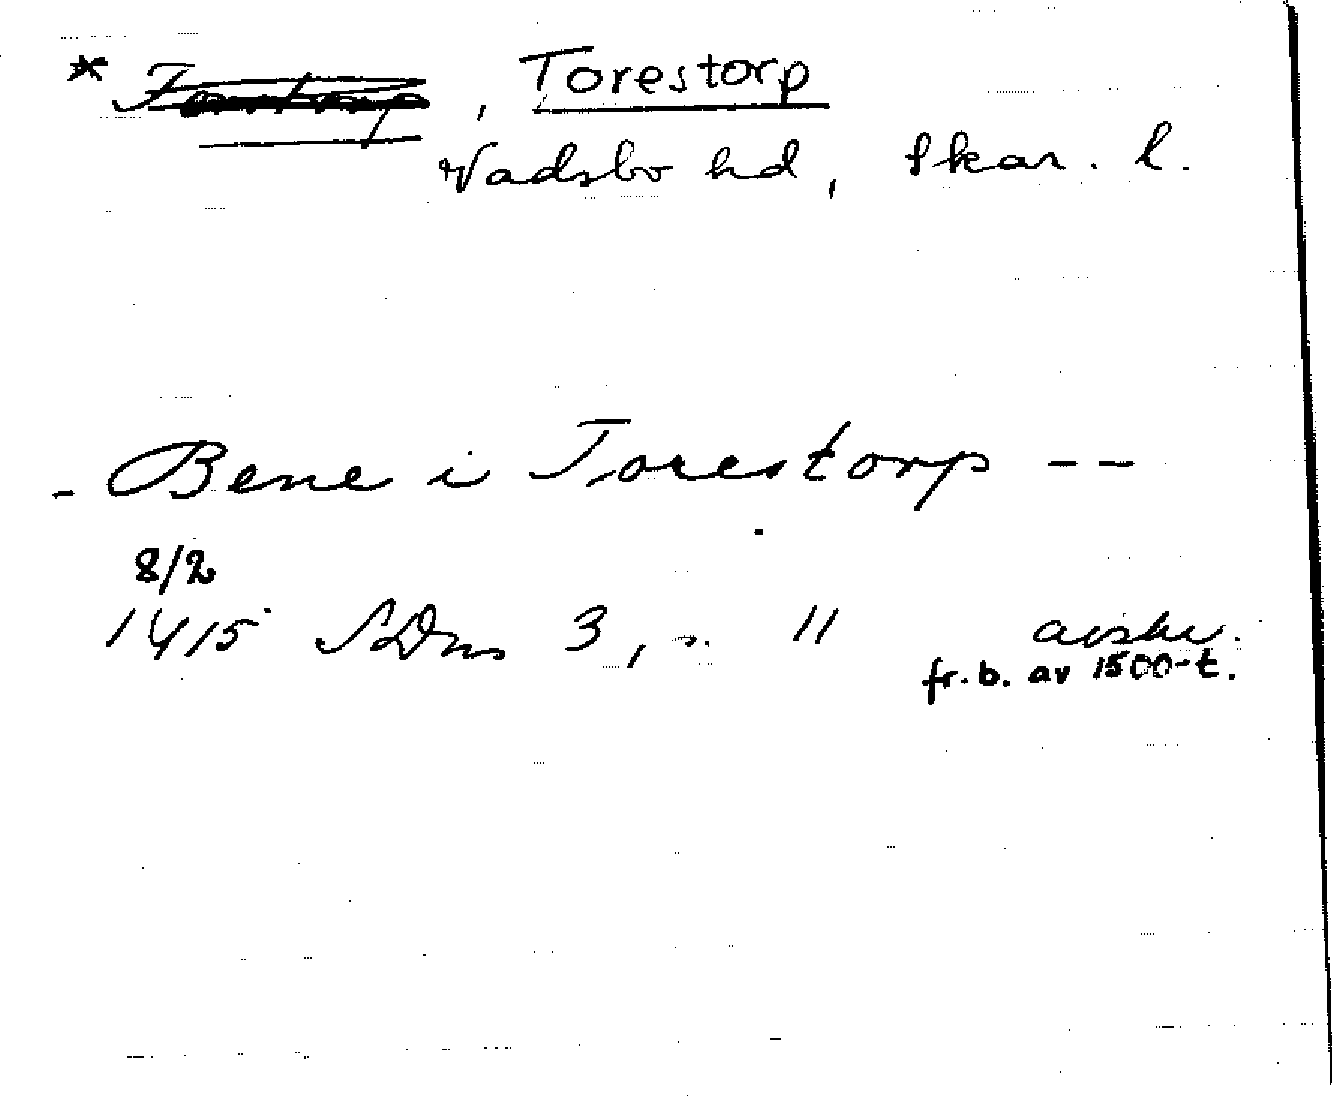 * , Torestorp
Vadsbo hd, Skar. l.
- Bene i Torestorp --
8/2
1415 SDns 3, s. 11 avskr.
fr. b. av 1500-t.